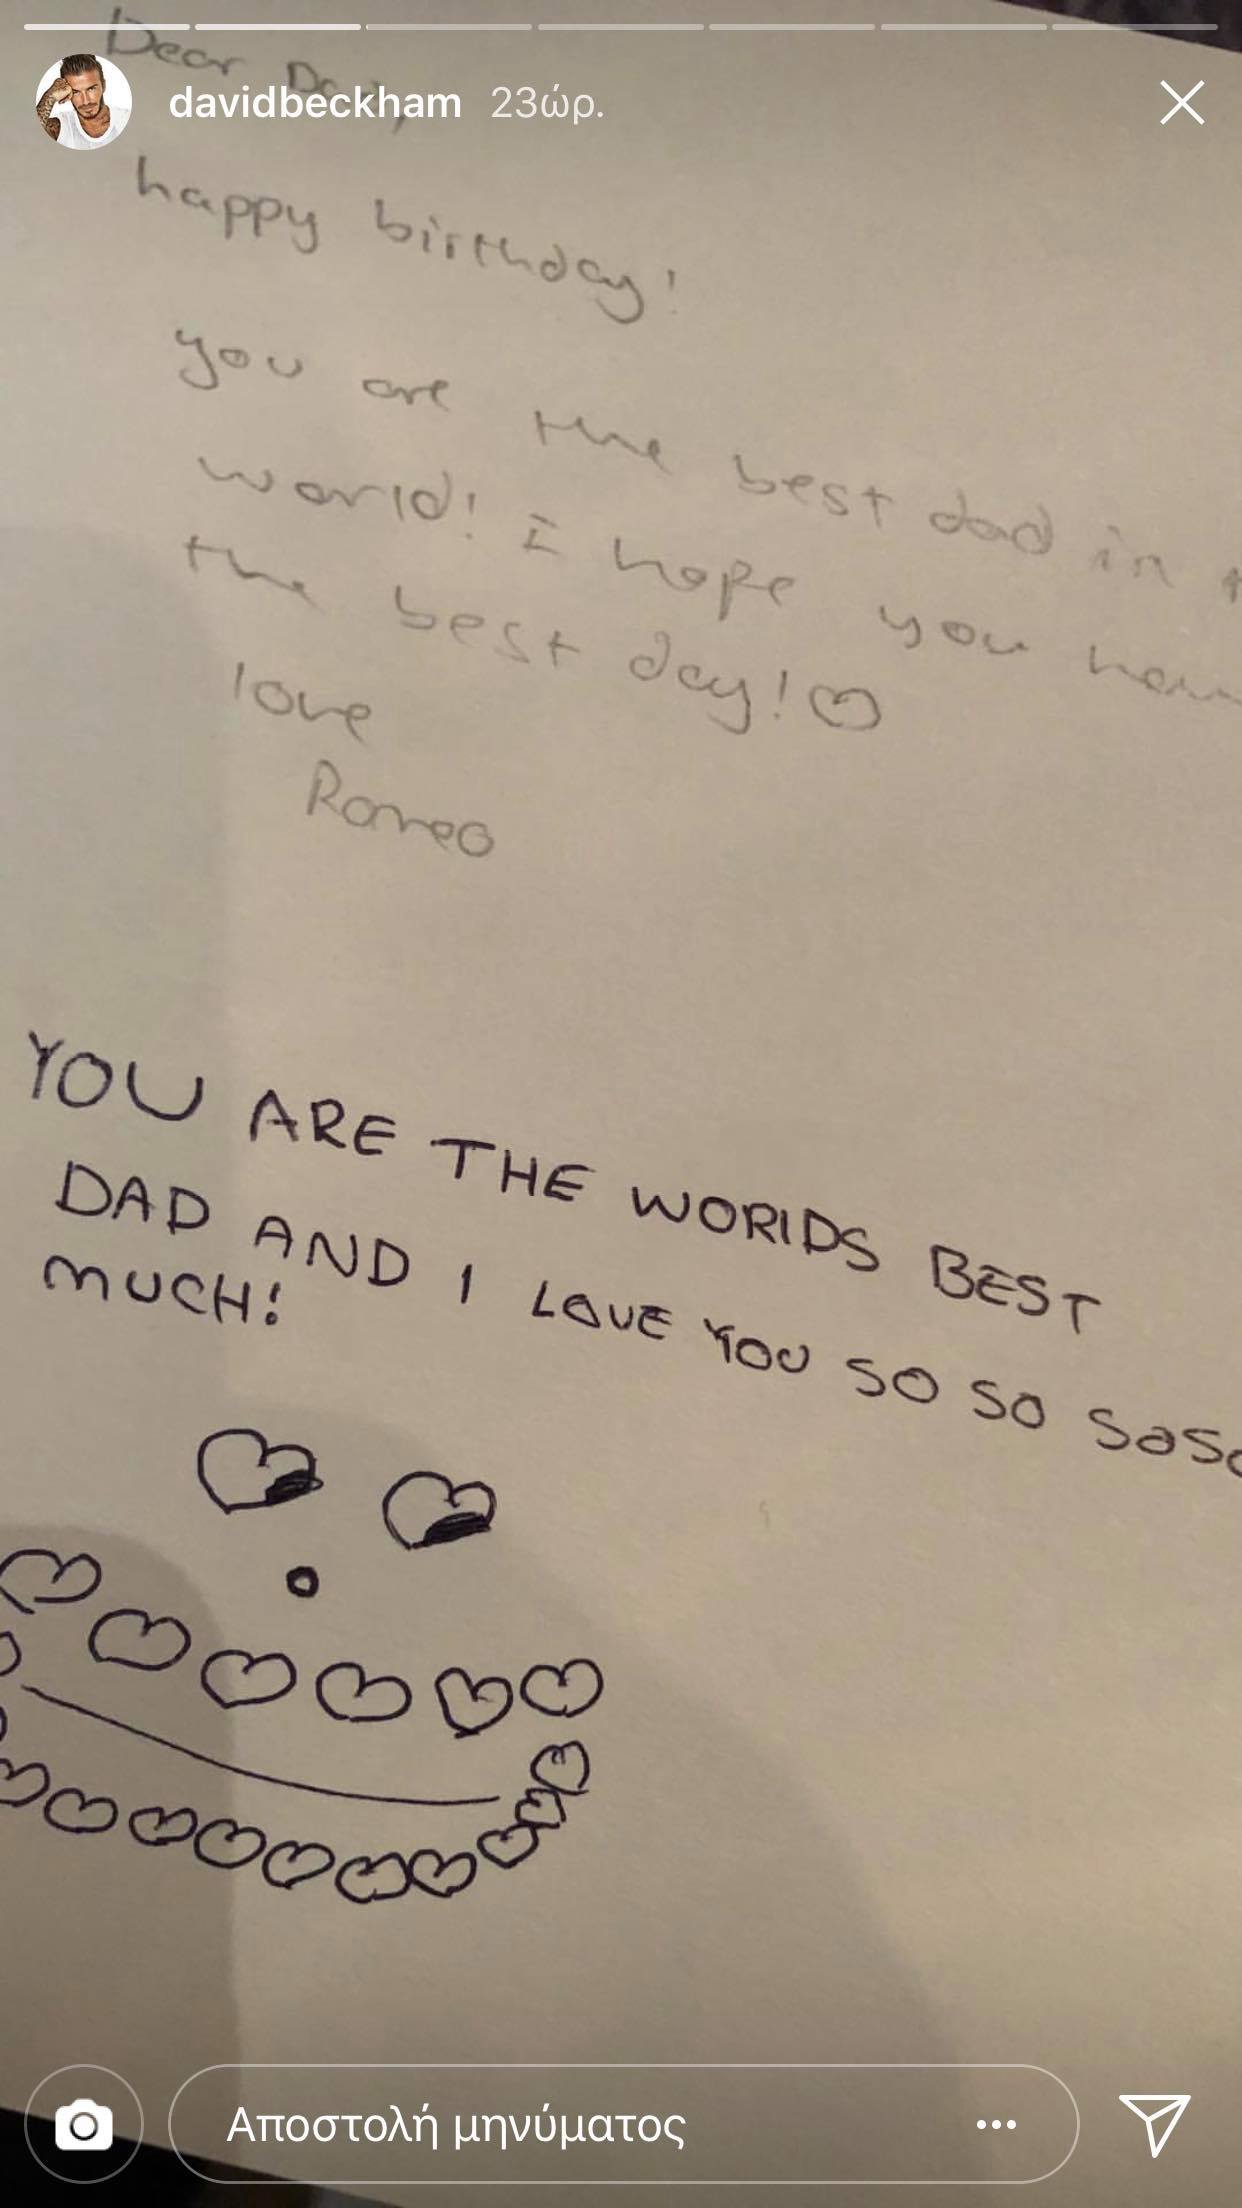 Dear Dad,
davidbeckham 23ώρ.
happy birthday!
you are the best dad in
world! I hope you
the best day!
love
Romeo
YOU ARE THE WORIDS BEST
DAD AND I LOVE YOU SO SO SOSO
MUCH!
Αποστολή μηνύματος